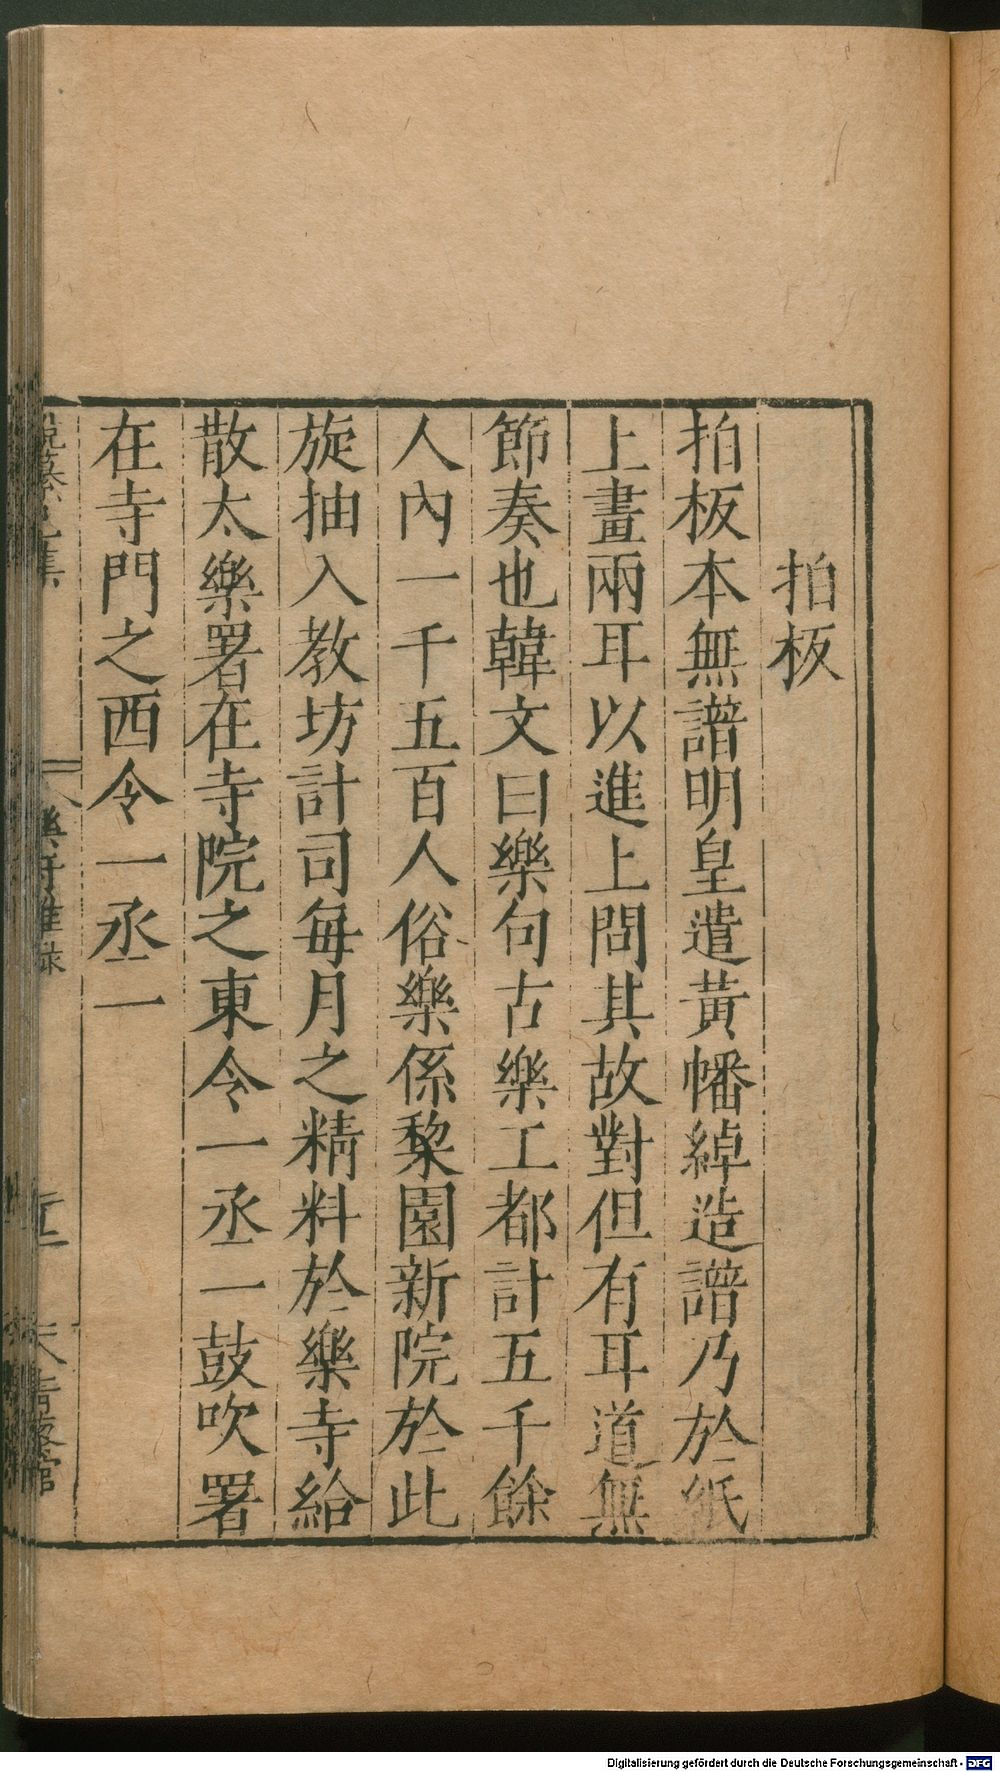 拍板
拍板本無譜明皇遣黃幡綽造譜乃於紙
上畫兩耳以進上問其故對但有耳道無
節奏也韓文曰樂句古樂工都計五千餘
人內一千五百人俗樂係棃園新院於此
旋抽入教坊計司每月之精料於樂寺給
散太樂署在寺院之東令一丞一鼓吹署
在寺門之西令一丞一
集
樂府雜錄
Digitalisierung gefördert durch die Deutsche Forschungsgemeinschaft - DFG